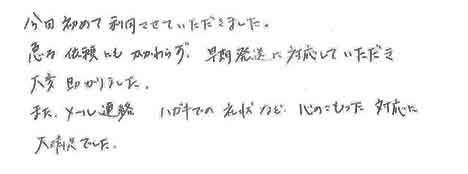 今回初めて利用させていただきました。
急な依頼にもかかわらず、早期発送に対応していただき
大変助かりました。
また、メール連絡 ハガキでの礼状など、心のこもった対応に
大満足でした。